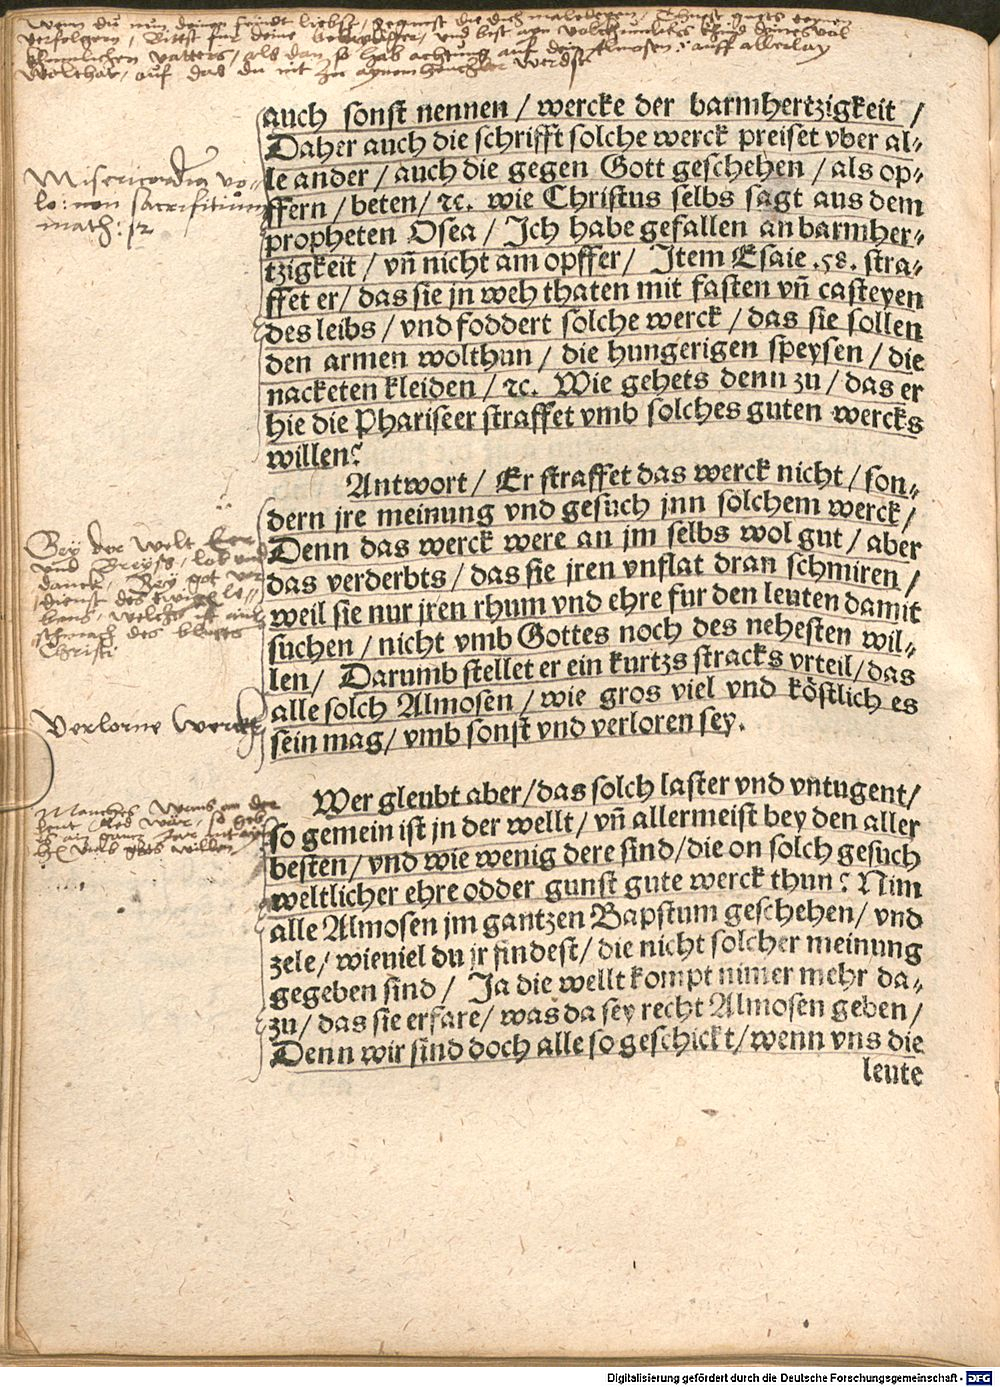 Wenn du nun deinen feindt liebst, segnest die dich maledeyen, thuest guts deinen
verfolgern, Bittst fur deine belaydiger, und bist ayn volckumlichs khind deines
himmlischen vatters, als dan so hab achtung auf dein Almosen, auff allerlay
Wolthat, auf das du nit zu aynem heuchler werdst
auch sonst nennen / wercke der barmhertzigkeit /
Daher auch die schrifft solche werck preiset vber al⸗
le ander / auch die gegen Gott geschehen / als op⸗
ffern / beten / ꝛc. wie Christus selbs sagt aus dem
propheten Osea / Ich habe gefallen an barmher⸗
tzigkeit / vñ nicht am opffer / Item Esaie .58. stra⸗
ffet er / das sie jn weh thaten mit fasten vñ casteyen
des leibs / vnd foddert solche werck / das sie sollen
den armen wolthun / die hungerigen speysen / die
nacketen kleiden / ꝛc. Wie gehets denn zu / das er
hie die Phariseer straffet vmb solches guten wercks
willen?
Misericordia vo⸗
lo: non sacrifitium
math: 12
Antwort / Er straffet das werck nicht / son⸗
dern jre meinung vnd gesuch jnn solchem werck /
Denn das werck were an jm selbs wol gut / aber
das verderbts / das sie jren vnflat dran schmiren /
weil sie nur jren rhum vnd ehre fur den leuten damit
suchen / nicht vmb Gottes noch des nehesten wil⸗
len / Darumb stellet er ein kurtzs stracks vrteil / das
alle solch Almosen / wie gros viel vnd köstlich es
sein mag / vmb sonst vnd verloren sey.
Bey der welt
und Preyss, lob und
danck, Bey got ver
dienst des ewigen le⸗
bens, welchs ist ain
schmach des bluetts
Christi
Verlorne Werck
Wer gleubt aber / das solch laster vnd vntugent /
so gemein ist jn der wellt / vñ allermeist bey den aller
besten / vnd wie wenig dere sind / die on solch gesuch
weltlicher ehre odder gunst gute werck thun? Nim
alle Almosen jm gantzen Bapstum geschehen / vnd
zele / wieuiel du jr findest / die nicht solcher meinung
gegeben sind / Ja die wellt kompt nimer mehr da⸗
zu / das sie erfare / was da sey recht Almosen geben /
Denn wir sind doch alle so geschickt / wenn vns die
leute
Mancher wens an der
umb gots willen
Digitalisierung gefördert durch die Deutsche Forschungsgemeinschaft - DFG